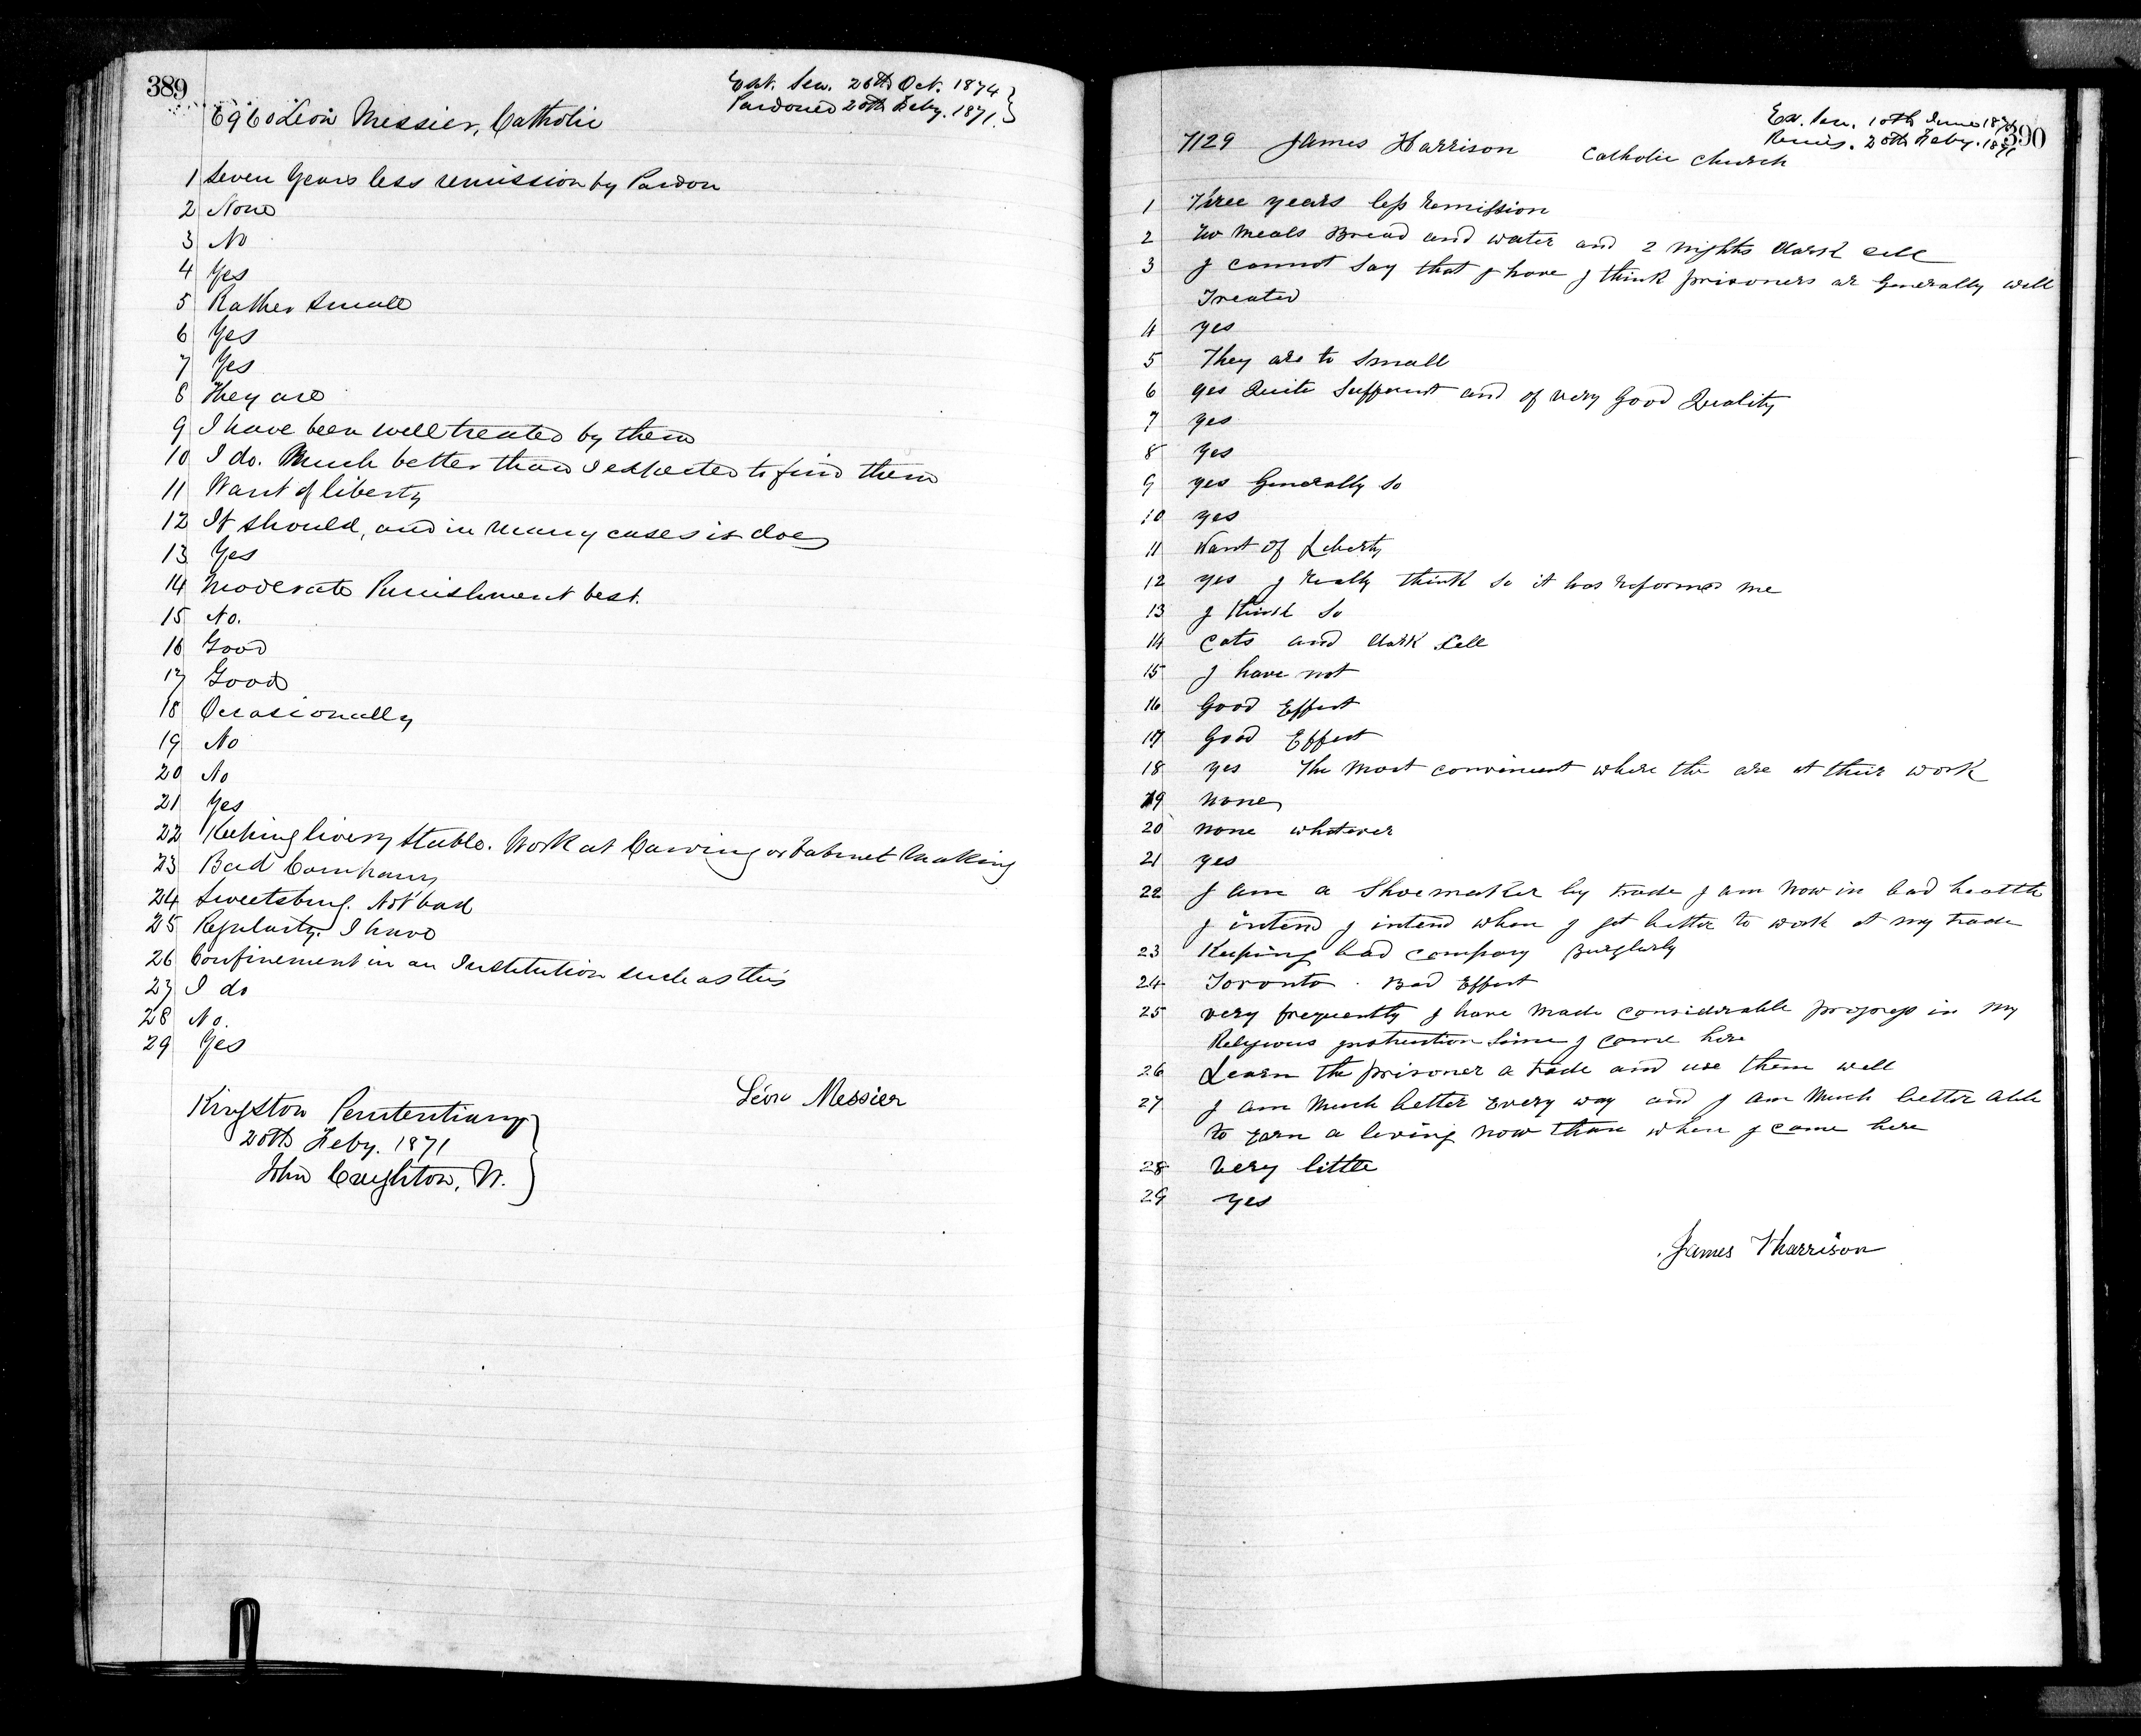 389
Ext. Sen. 26th Oct. 1874
Pardoned 20th Feby. 1871.
6960 Léon Messier, Catholic
1 Seven Years less remission by Pardon
2 None
3 No
4 Yes
5 Rather Small
6 Yes
7 Yes
8 They are
9 I have been well treated by them
10 I do. Much better than I expected to find them
11 Want of liberty
12 It should, and in many cases it does
13 Yes
14 Moderate Punishment best.
15 No.
16 Good
17 Good
18 Occasionally
19 No
20 No
21 Yes
22 Keeping livery Stable. Work at Carving or Cabinet Making
23 Bad Company
24 Sweetsburg. Not bad
25 Regularly. I have
26 Confinement in an Institution such as this
27 I do
28 No.
29 Yes
Léon Messier
Kingston Penitentiary
20th Feby. 1871
John Creighton, W.
390
Ex. Sen. 10th June 1871
Remis. 20th Feby. 1871
7129 James Harrison Catholic Church
1 Three years less Remission
2 Meals Bread and water and 2 nights dark Cell
3 I cannot Say that I have I think prisoners ar Generally well
Treated
4 yes
5 They are to Small
6 yes Quite Suffecent and of very Good Quality
7 yes
8 yes
9 yes Generally So
10 yes
11 Want of Liberty
12 yes I Really think So it has Reformed me
13 I think So
14 Cats and dark Cell
15 I have not
16 Good Effect
17 Good Effect
18 yes The Most convinent where the are at their work
19 none
20 none whatever
21 yes
22 I am a Shoemaker by trade I am now in bad health
I intend I intend when I get better to work at my trade
23 Keeping bad company Burglarly
24 Toronto. Bad Effect
25 very frequently I have Made Considerable progress in My
Religious instruction Since I came here
26 Learn the prisoner a trade and use them well
27 I am Much better Every way and I am Much better able
to Earn a living now than when I came here
28 Very little
29 yes
James Harrison